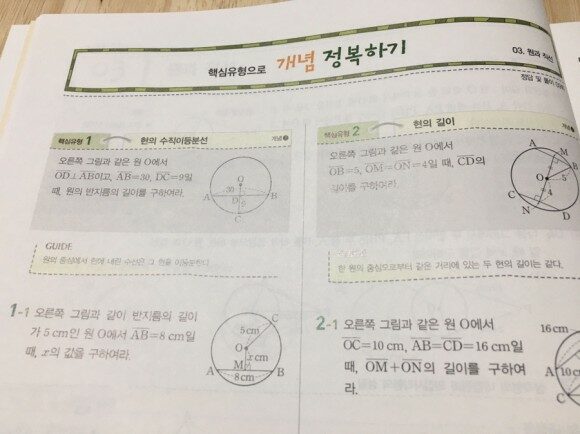 핵심유형으로 개념 정복하기
03. 원과 직선
정답 및 풀이
핵심유형 1 현의 수직이등분선 개념
오른쪽 그림과 같은 원 O에서
OD⊥AB이고, AB=30, DC=9일
때, 원의 반지름의 길이를 구하여라.
O
30
A D B
9
C
GUIDE
원의 중심에서 현에 내린 수선은 그 현을 이등분한다.
1-1 오른쪽 그림과 같이 반지름의 길이
가 5 cm인 원 O에서 AB=8 cm일
때, x의 값을 구하여라.
C
5cm
O
x cm
M
A B
8cm
핵심유형 2 현의 길이 개념
오른쪽 그림과 같은 원 O에서
OB=5, OM=ON=4일 때, CD의
길이를 구하여라.
A
M
B
O 5
4
C
N D
한 원의 중심으로부터 같은 거리에 있는 두 현의 길이는 같다.
2-1 오른쪽 그림과 같은 원 O에서
OC=10 cm, AB=CD=16 cm일
때, OM+ON의 길이를 구하여
라.
16cm
A
10c
C